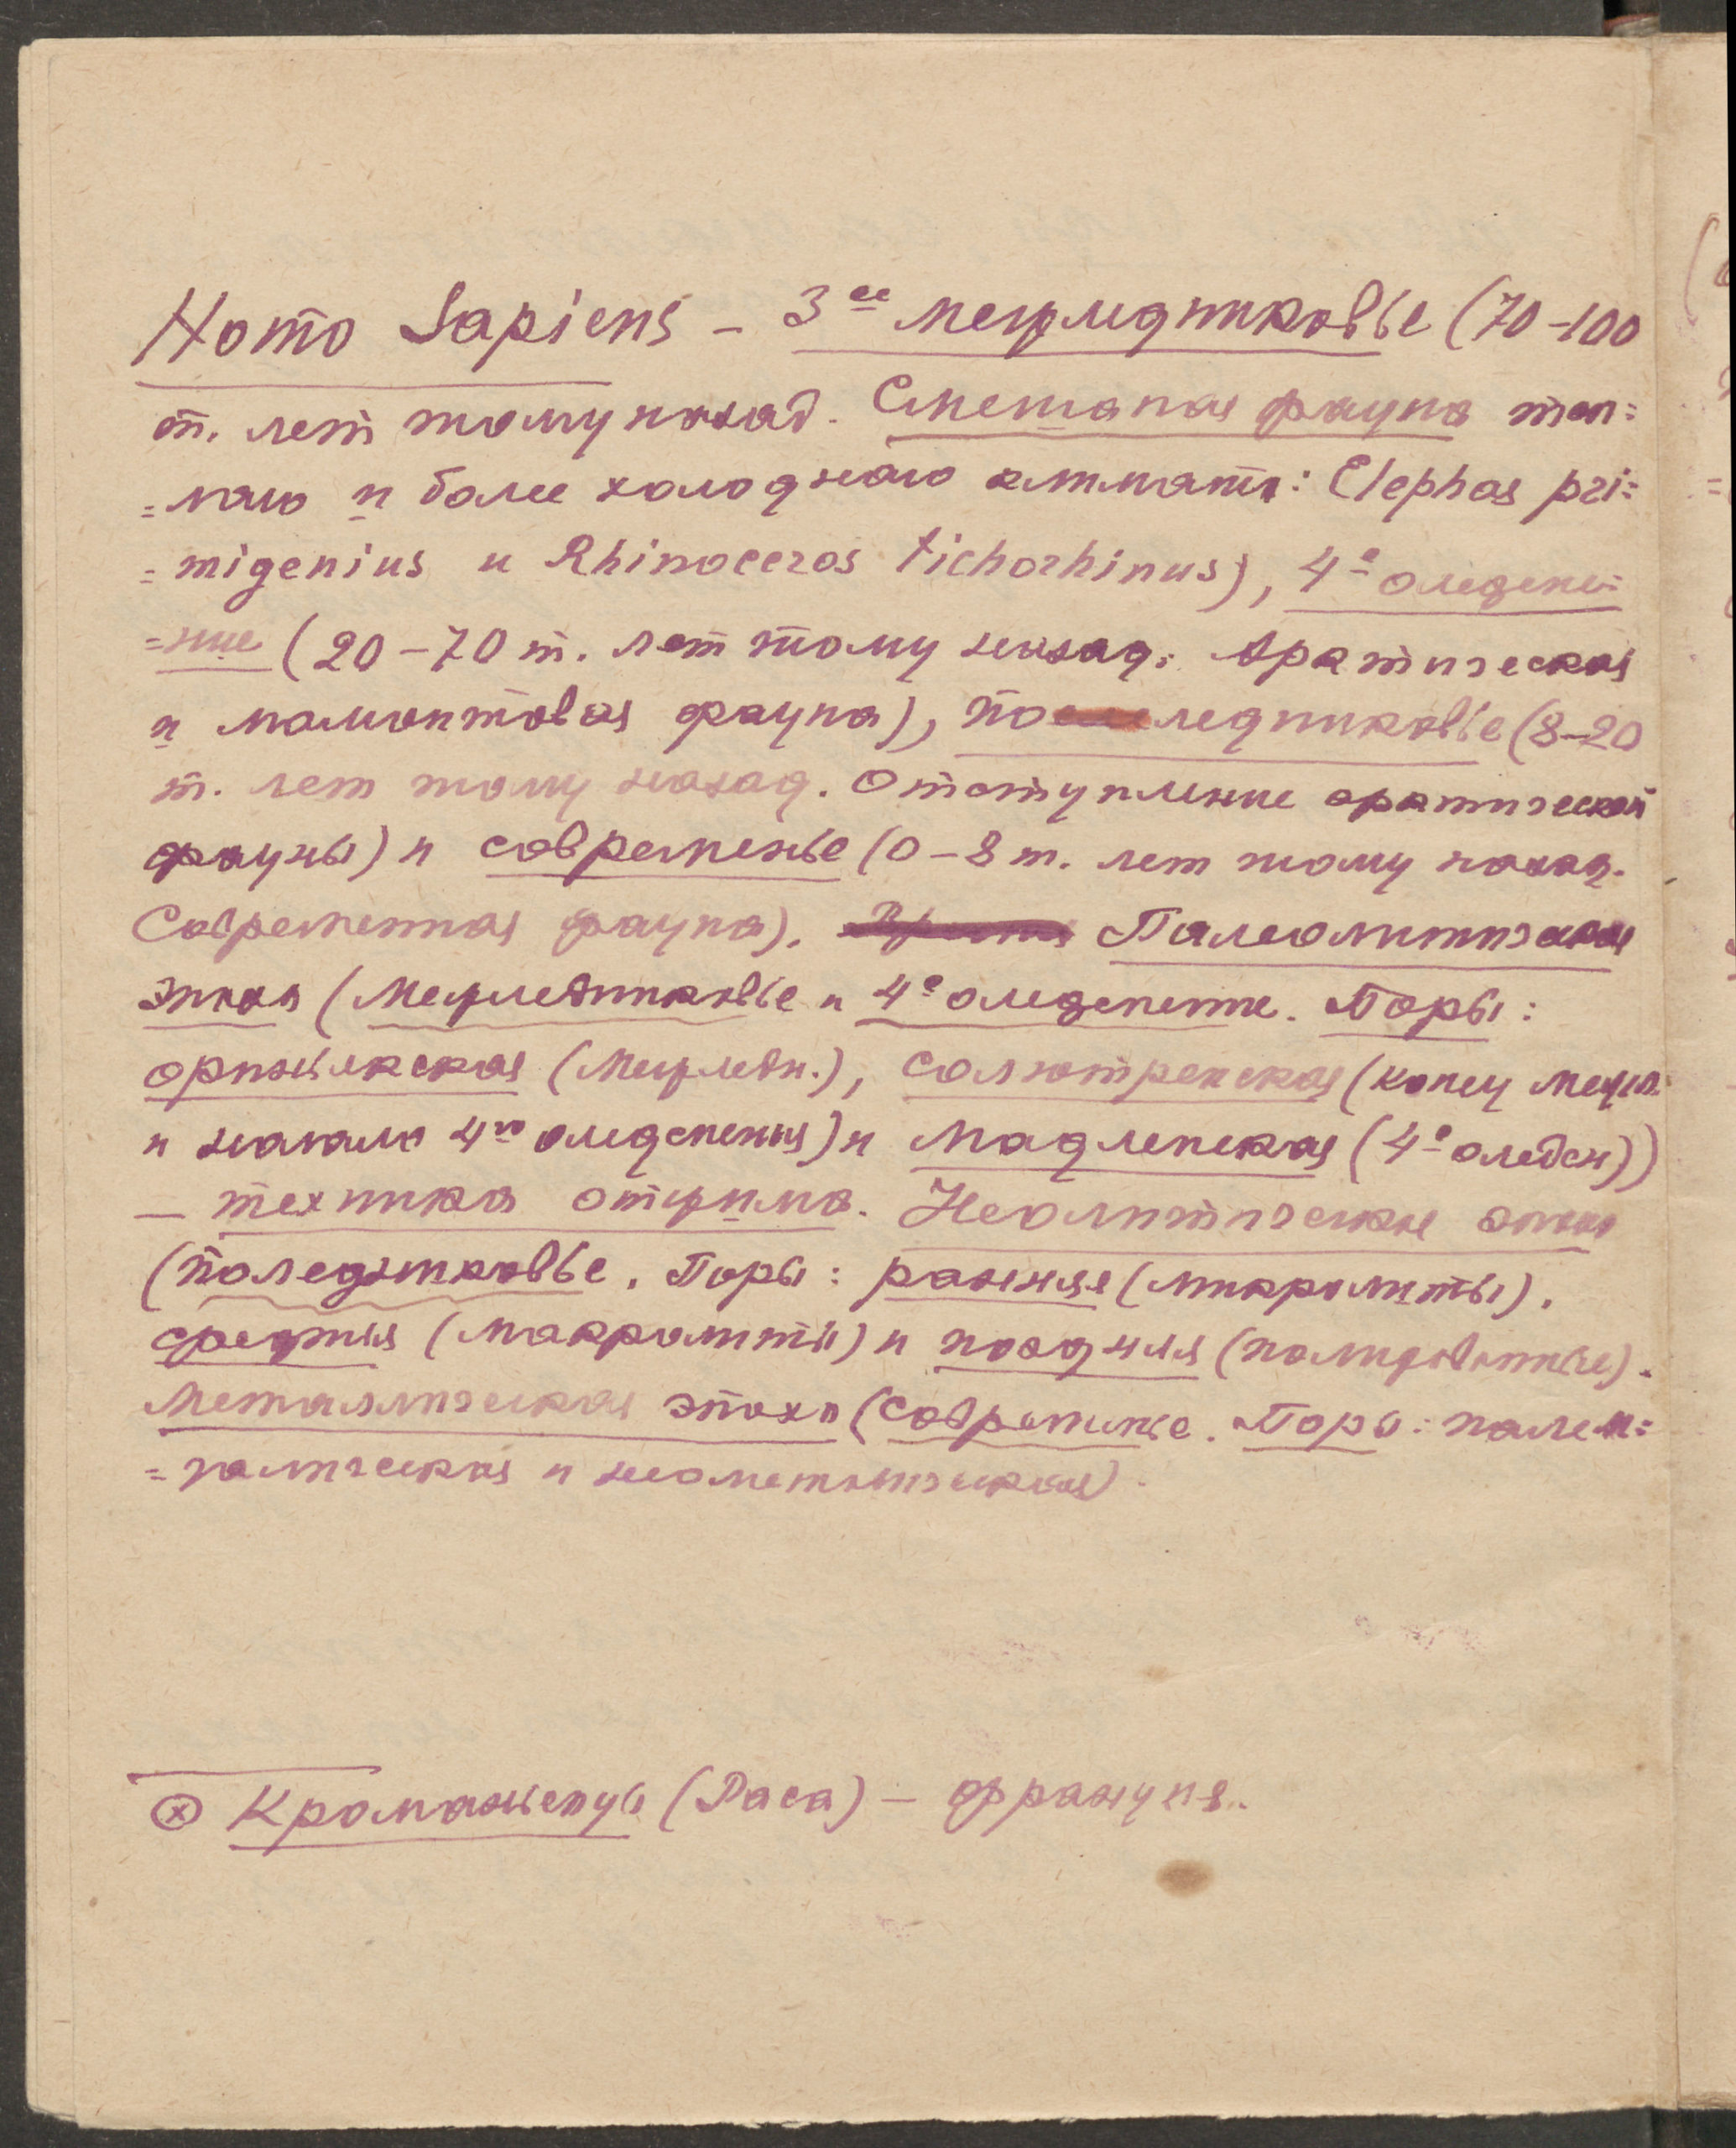 Homo Sapiens – 3ее межледниковье (70–100
т. лет тому назад. Смешаная фауна теп=
=лаго и более холоднаго климата: Elephas pri=
=migenius и Rhinoceros tichorhinus), 4е оледене=
=ние (20–70 т. лет тому назад. Арктическая
и мамонтовая фауна), поледниковье (8–20
т. лет тому назад. Отступление арктической
фауны) и современье (0–8 т. лет тому назад.
Современная фауна). Палеолитическая
эпоха (Межледниковье и 4е оледенение. Поры:
ориньякская (Межледн.), солютренская (конец межл.
и начало 4го оледенения) и мадленская (4е оледен))
– техника отжима. Неолитическая эпоха
(поледниковье. Поры: ранняя (микролиты),
средняя (макролиты) и поздняя
Металлическая эпоха (современье. Поры:
и
⊗ Кроманьенцы (Раса) –